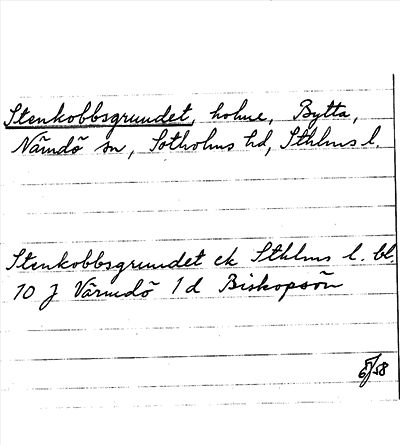 Stenkobbsgrundet, holme, Bytta,
Nämdö sn, Sotholms hd, Sthlms l.
Stenkobbsgrundet ek Sthlms l. bl.
10 J Värmdö 1d Biskopsön
/58